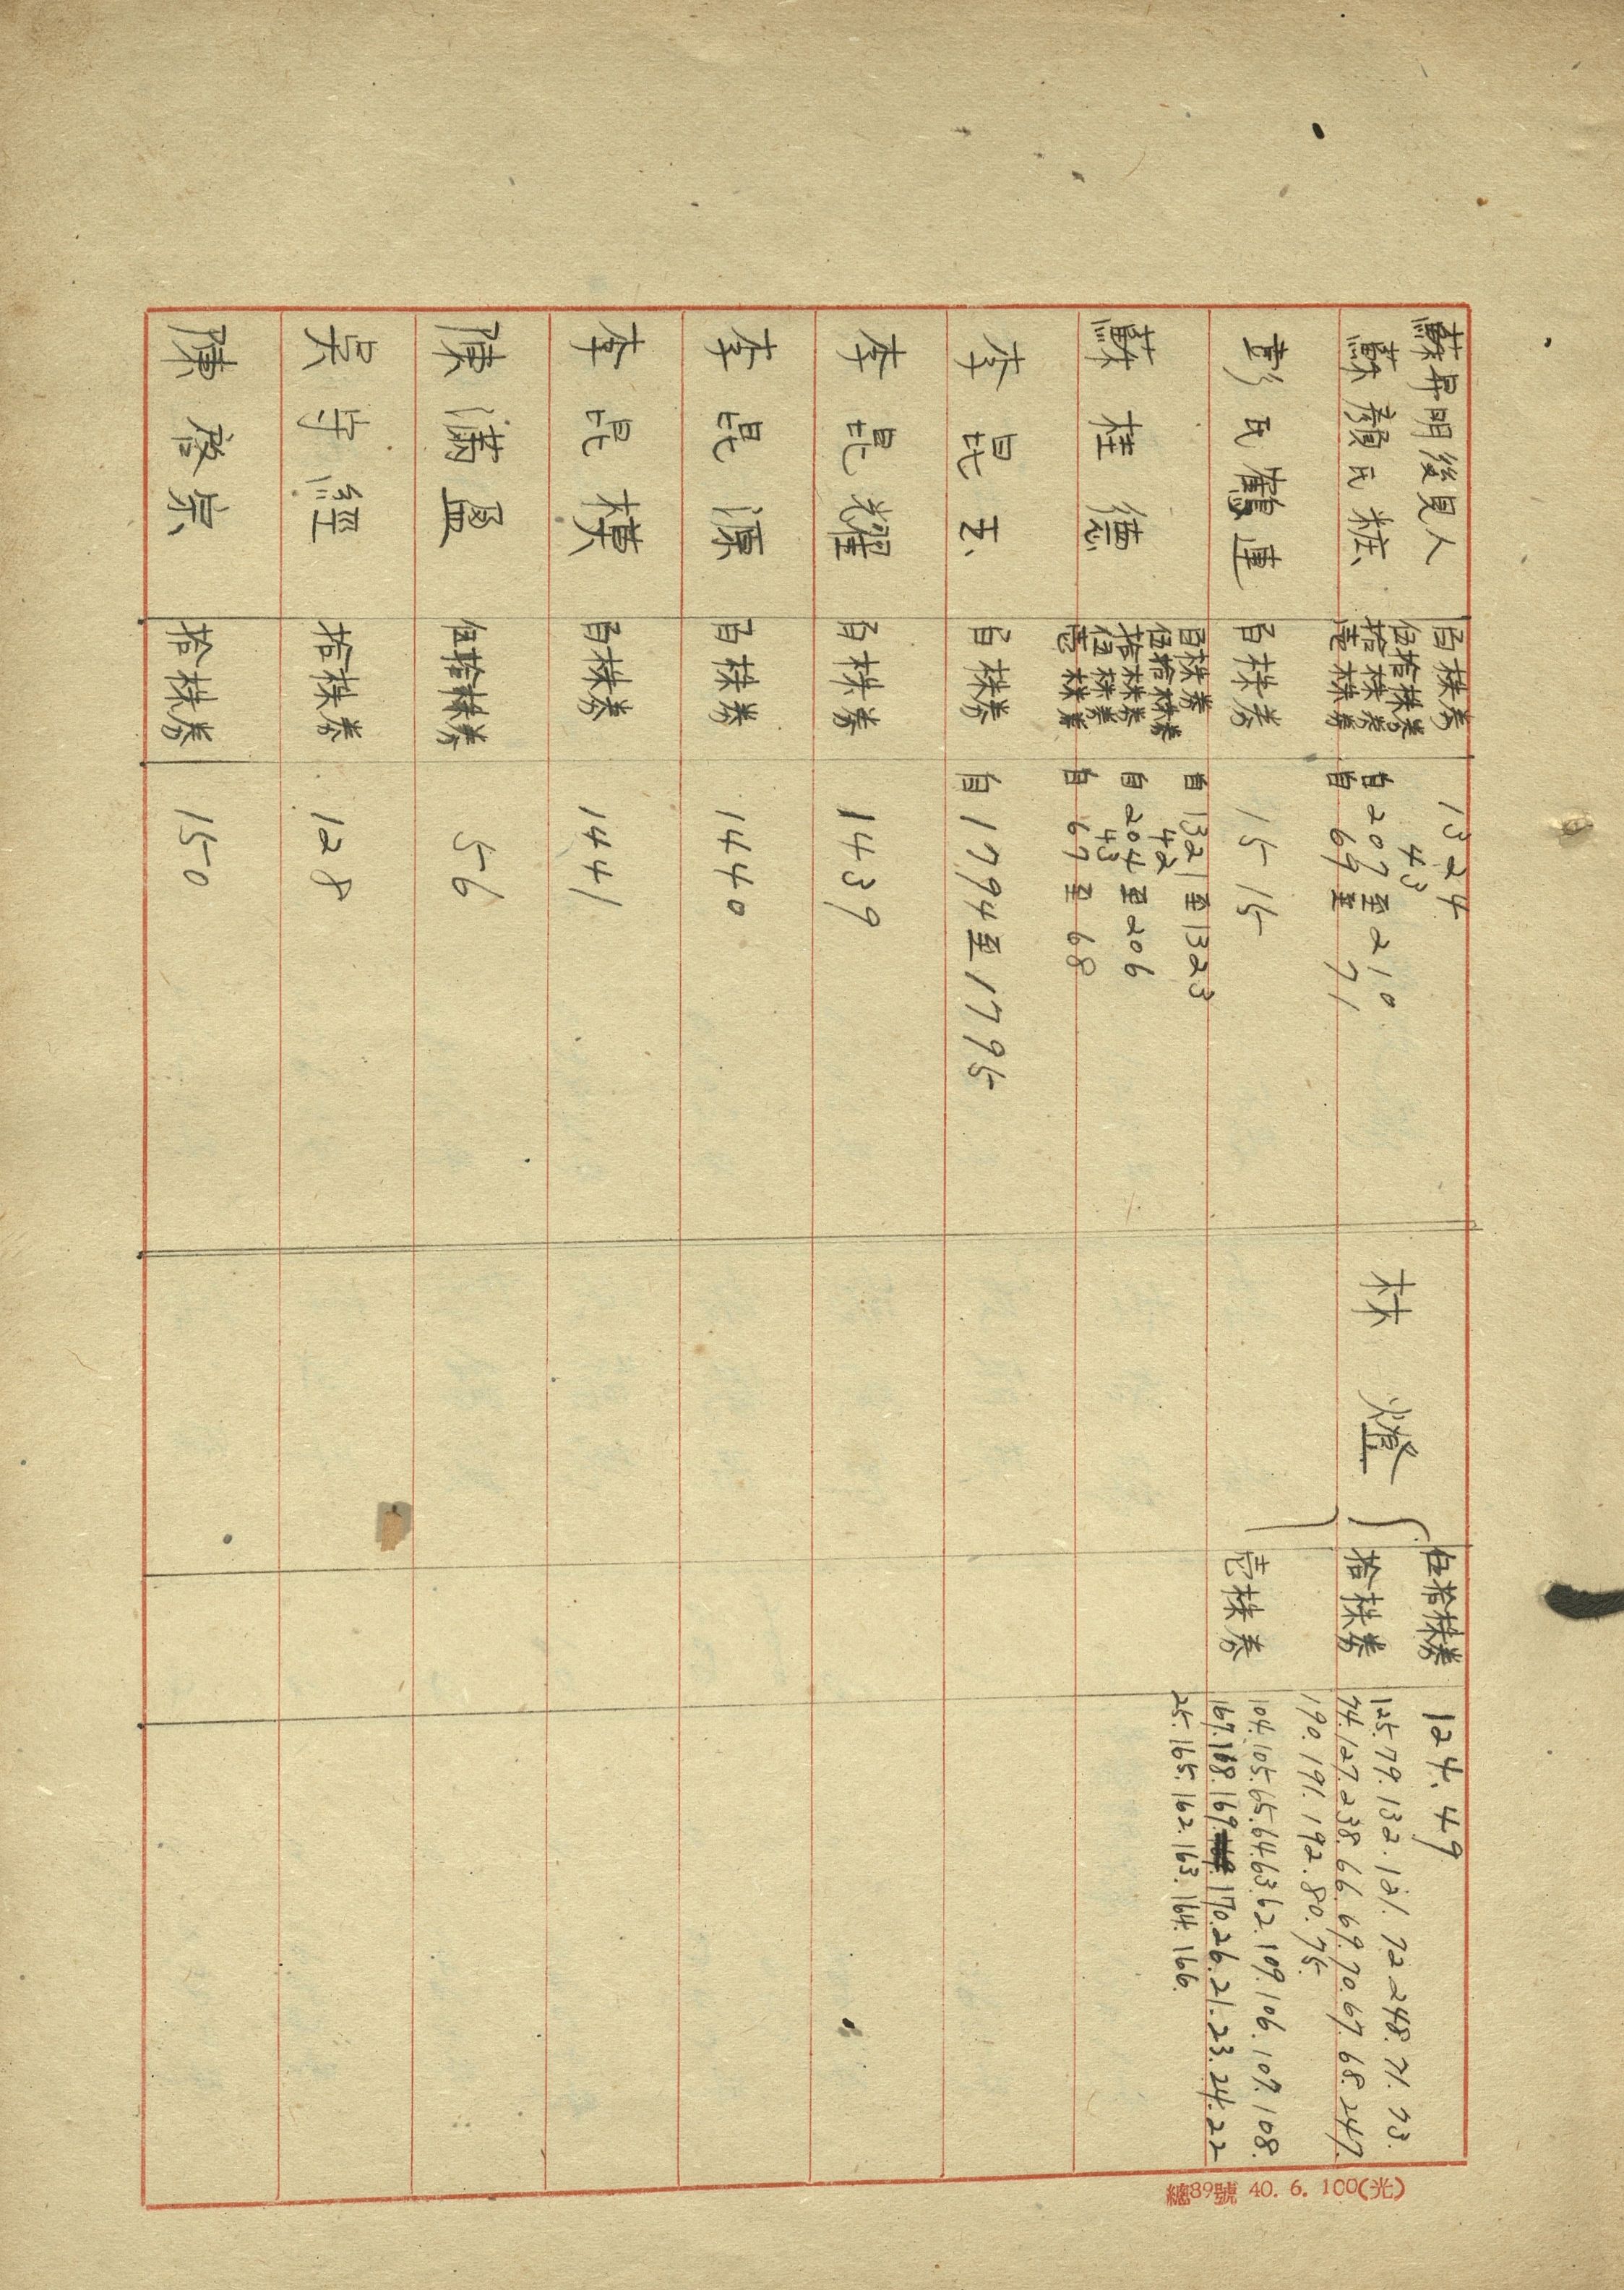 蘇昇明後見人
蘇顏氏粧
百株券 1324
伍拾株券 43
拾株券 自207至210
壱株券 自69至71
彭氏鶴連
百株券 1515
蘇桂德
百株券 自1321至1323
伍拾株券 42
拾株券 自204至206
伍株券 43
壱株券 自67至68
李昆玉
百株券 自1794至1795
李昆耀
百株券 1439
李昆源
百株券 1440
李昆模
百株券 1441
陳滿盈
伍拾株券 56
吳守經
拾株券 128
陳啓宗
拾株券 150
林燈
伍拾株券 124.49
拾株券 125.79.132.121.72.248.71.73.
74.127.238.66.69.70.67.68.247.
190.191.192.80.75.
壱株券 104.105.65.64.63.62.109.106.107.108.
167.168.169.170.26.21.23.24.22
25.165.162.163.164.166.
總89號 40.6.100(光)